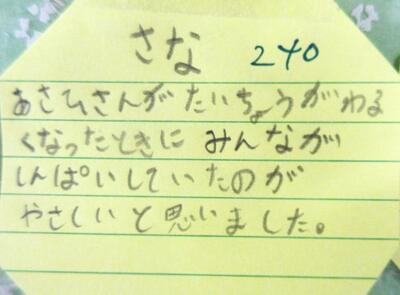 さな 240
あさひさんがたいちょうがわる
くなったときにみんなが
しんぱいしていたのが
やさしいと思いました。